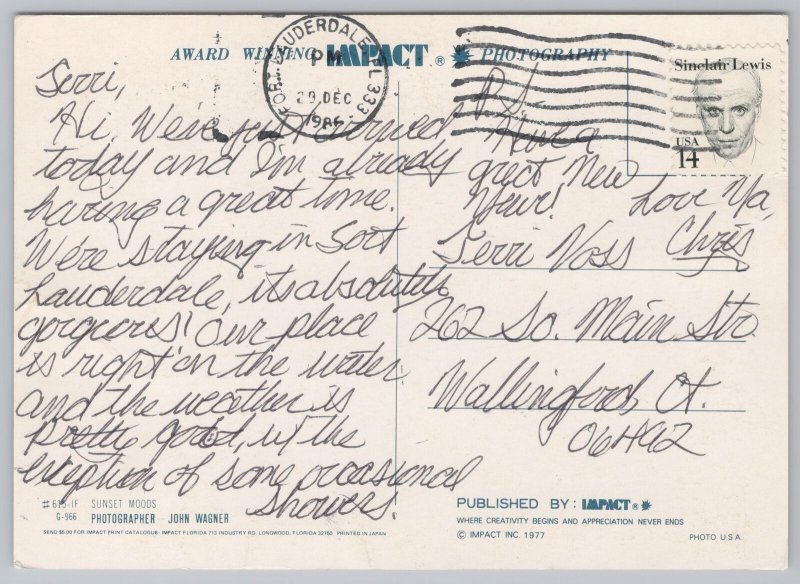 AWARD WINNING IMPACT® PHOTOGRAPHY
FORT LAUDERDALE, FL 333
PM
29 DEC
Sinclair Lewis
USA
14
Terri,
Hi. We've just arrived
today and I'm already
having a great time.
We're staying in Fort
Lauderdale, its absolutely
gorgeous! Our place
is right on the water
and the weather is
pretty good, w/ the
exception of some occasional
showers!
P.S. Have a
great New
Year!
Love Ya,
Chris
Terri Voss
262 So. Main Str.
Wallingford, Ct.
06492
G-966
SUNSET MOODS
PHOTOGRAPHER JOHN WAGNER
SEND $5.00 FOR IMPACT PRINT CATALOGUE· IMPACT FLORIDA 713 INDUSTRY RD. LONGWOOD, FLORIDA 32750 PRINTED IN JAPAN
PUBLISHED BY: IMPACT®
WHERE CREATIVITY BEGINS AND APPRECIATION NEVER ENDS
© IMPACT INC. 1977
PHOTO U.S.A.